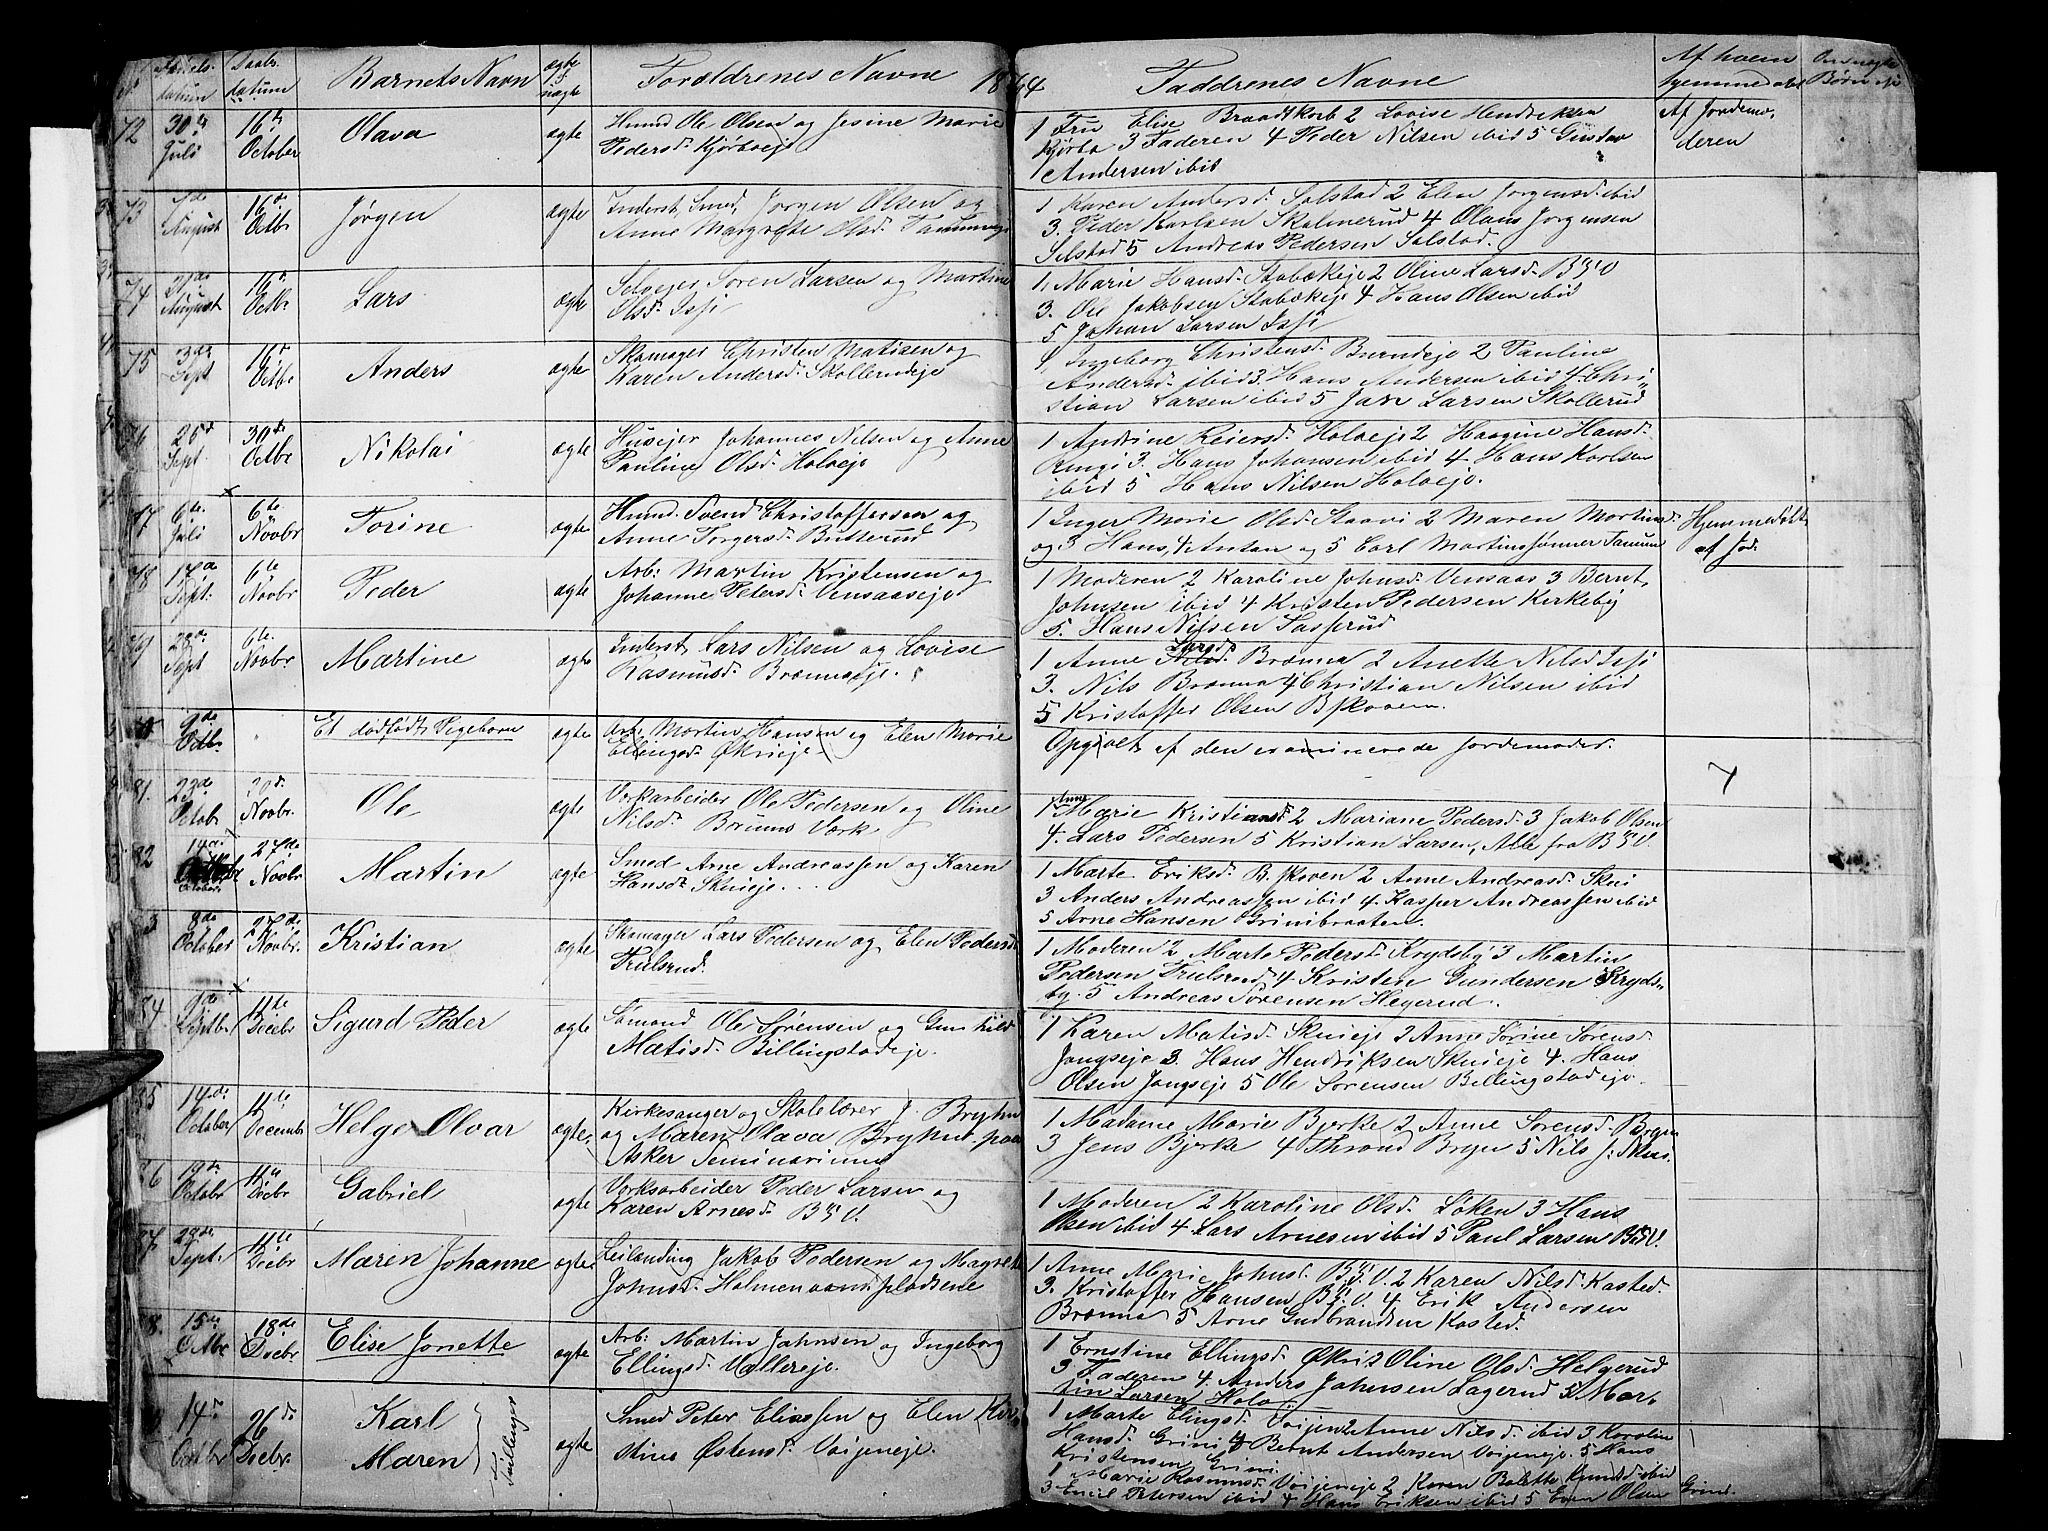 datum datum Barnets Navn ægte uægte Forældrenes Navne 1864 Faddrenes Navne Af hvem hjemmedøbt
72 30te Juli 16de October Olava ægte Husmd Ole Olsen og Jesine Marie
Pedersd. Kjørboeje
1 Fru Elise Brandtkorb 2 Lovise Hendriksen
Kjørbo 3 Faderen 4 Peder Nilsen ibid 5 Gustav
Andersen ibid
Af Jordemo,
deren
73 August 16de Octbr Jørgen ægte Inderst, Smed, Jørgen Olsen og
Anne Margrethe Olsd.
1 Karen Andersd. Solstad 2 Elen Jørgensd. ibid
3. Peder Karlsen Skolmerud 4 Olaus Jørgensen
Solstad 5 Andreas Pedersen Solstad.
74 August 16de Octbr Lars ægte Selveier Søren Larsen og Martine
Olsd. Issi
1, Marie Hansd. Stabækeje 2 Oline Larsd. B.V.
3. Ole Jakobsen Stabækeje 4 Hans Olsen ibid
5 Johan Larsen Issi
75 3de Sept 16de Octbr Anders ægte Skomager Christen Matisen og
Karen Andersd. Skollerudeje
1, Ingeborg Christensd. Burudeje 2 Pauline
Andersd. ibid 3. Hans Andersen ibid 4. Chri,,
stian Larsen ibid 5 Jan Larsen Skollerud
76 Sept. 30de Octbr Nikolai ægte Huseier Johannes Nilsen og Anne
Pauline Olsd. Holoeje
1 Andrine Reiersd. Holoeje 2 Haagine Hansd.
Ringi 3. Hans Johansen ibid 4 Hans Karlsen
ibid 5 Hans Nilsen Holoeje.
77 6te Juli 6te Novbr Torine ægte Husmd. Svend Christoffersen og
Anne Torgersd. Butterud
1 Inger Marie Olsd. Staavi 2 Maren Martinsd.
og 3 Hans, 4 Antan og 5 Carl Martinssønner Tanum
Hjemmedøbt
af Jod.
78 17de Sept. 6te Novbr Peder ægte Arb: Martin Kristensen og
Johanne Petersd. Vensaaseje
1 Moderen 2 Karoline Johnsd. Vensaas 3 Bernt
Johnsen ibid 4 Kristen Pedersen Kirkeby
5. Hans Nilsen Sasserud
79 28de Sept 6te. Novbr Martine ægte Inderst Lars Nilsen og Lovise
Rasmusd. Brænnaeje.
1 Anne Larsd. Brænna 2 Anette Nilsd Issi
3. Nils Brænna 4 Christian Nilsen ibid
5 Kristoffer Olsen B,skoven.
80 9de Octbr Et dødfødt Pigebarn ægte Arb. Martin Hansen og Elen Marie
Ellingsd. Økrieje
Opgivet af den examinerede Jordemoder.
81. 23de Octobr Novbr. Ole ægte Verkarbeider Ole Pedersen og Oline
Nilsd. Bærums Verk
1 Anne Marie Kristiansd. 2 Mariane Pedersd. 3 Jakob Olsen
4. Lars Pedersen 5 Kristian Larsen, Alle fra B.V.
82 14de October 27de Novbr Martin ægte Smed Arne Andreassen og Karen
Hansd. Skuieje...
1 Marte Eriksd. B.skoven 2 Anne Andreasd. Skui
3 Anders Andreassen ibid 4. Kasper Andreassen ibid
5 Arne Hansen Grinibraaten.
83 8de October 27de Novbr. Kristian ægte Skomager Lars Pedersen og Elen Pedersd.
Trulsrud.
1 Moderen 2 Marte Pedersd. Krydsby 3 Martin
Pedersen Trulsrud 4 Kristen Gundersen Kryds,,
by. 5 Andreas Sørensen Hegerud.
84 9de Septbr. 11te Decbr Sigurd Peder ægte Sømand Ole Sørensen og Gunhild
Matisd. Billingstadeje.
1 Karen Matisd. Skuieje 2 Anne Sørine Sørensd.
Jongseje 3. Hans Hendriksen Skuieje 4. Hans
Olsen Jongseje 5 Ole Sørensen Billingstadeje.
85 14de October 11te Decembr Helge Olvar ægte Kirkesanger og Skolelærer J. Bryhn
og Maren Olava Bryhn, paa
Asker Seminarium
1 Madame Marie Bjerke 2 Anne Sørensd. Bryn
3 Jens Bjerke 4 Thrond Bryn 5 Nils J: Skui.
86 19de Octobr 11te Decbr Gabriel ægte Verksarbeider Peder Larsen og
Karen Arnesd. B.V.
1 Moderen 2 Karoline Olsd. Løken 3 Hans
Olsen ibid 4 Lars Arnesen ibid 5 Paul Larsen B.V.
87 29de Sept. 11te Decbr Maren Johanne ægte Leilænding Jakob Pedersen og Magrete
Johnsd. Holmen
1 Anne Marie Johnsd. B.V. 2 Karen Nilsd. Kasted.
3. Kristoffer Hansen B.V. 4. Erik Andersen
Brænna 5 Arne Gudbrandsen Kasted.
88. 15de Octbr 18de Decbr Elise Jonette ægte Arb: Martin Johnsen og Ingeborg
Ellingsd. Vallereje.
1 Ernstine Ellingsd. Økri 2 Oline Olsd. Helgerud
3 Faderen 4. Anders Johnsen Lagerud 5. Mar,
tin Larsen Holo
14de Octobr 26de Decbr. Karl
Maren Tvillinger ægte Smed Peter Eliassen og Elen Kir,
stine Østensd. Voijeneje.
1 Marte Elingsd. Voijen 2 Anne Nilsd. ibid 3 Karoline
Hansd. Grini 4 Bernt Andersen Voijeneje. 5 Hans
Kristensen Grini
1 Marie Rasmusd. Voijeneje 2 Karen Bolette Knudsd ibid
3 Emil Petersen ibid 4 Hans Eriksen ibid 5 Even Olsen Grini.